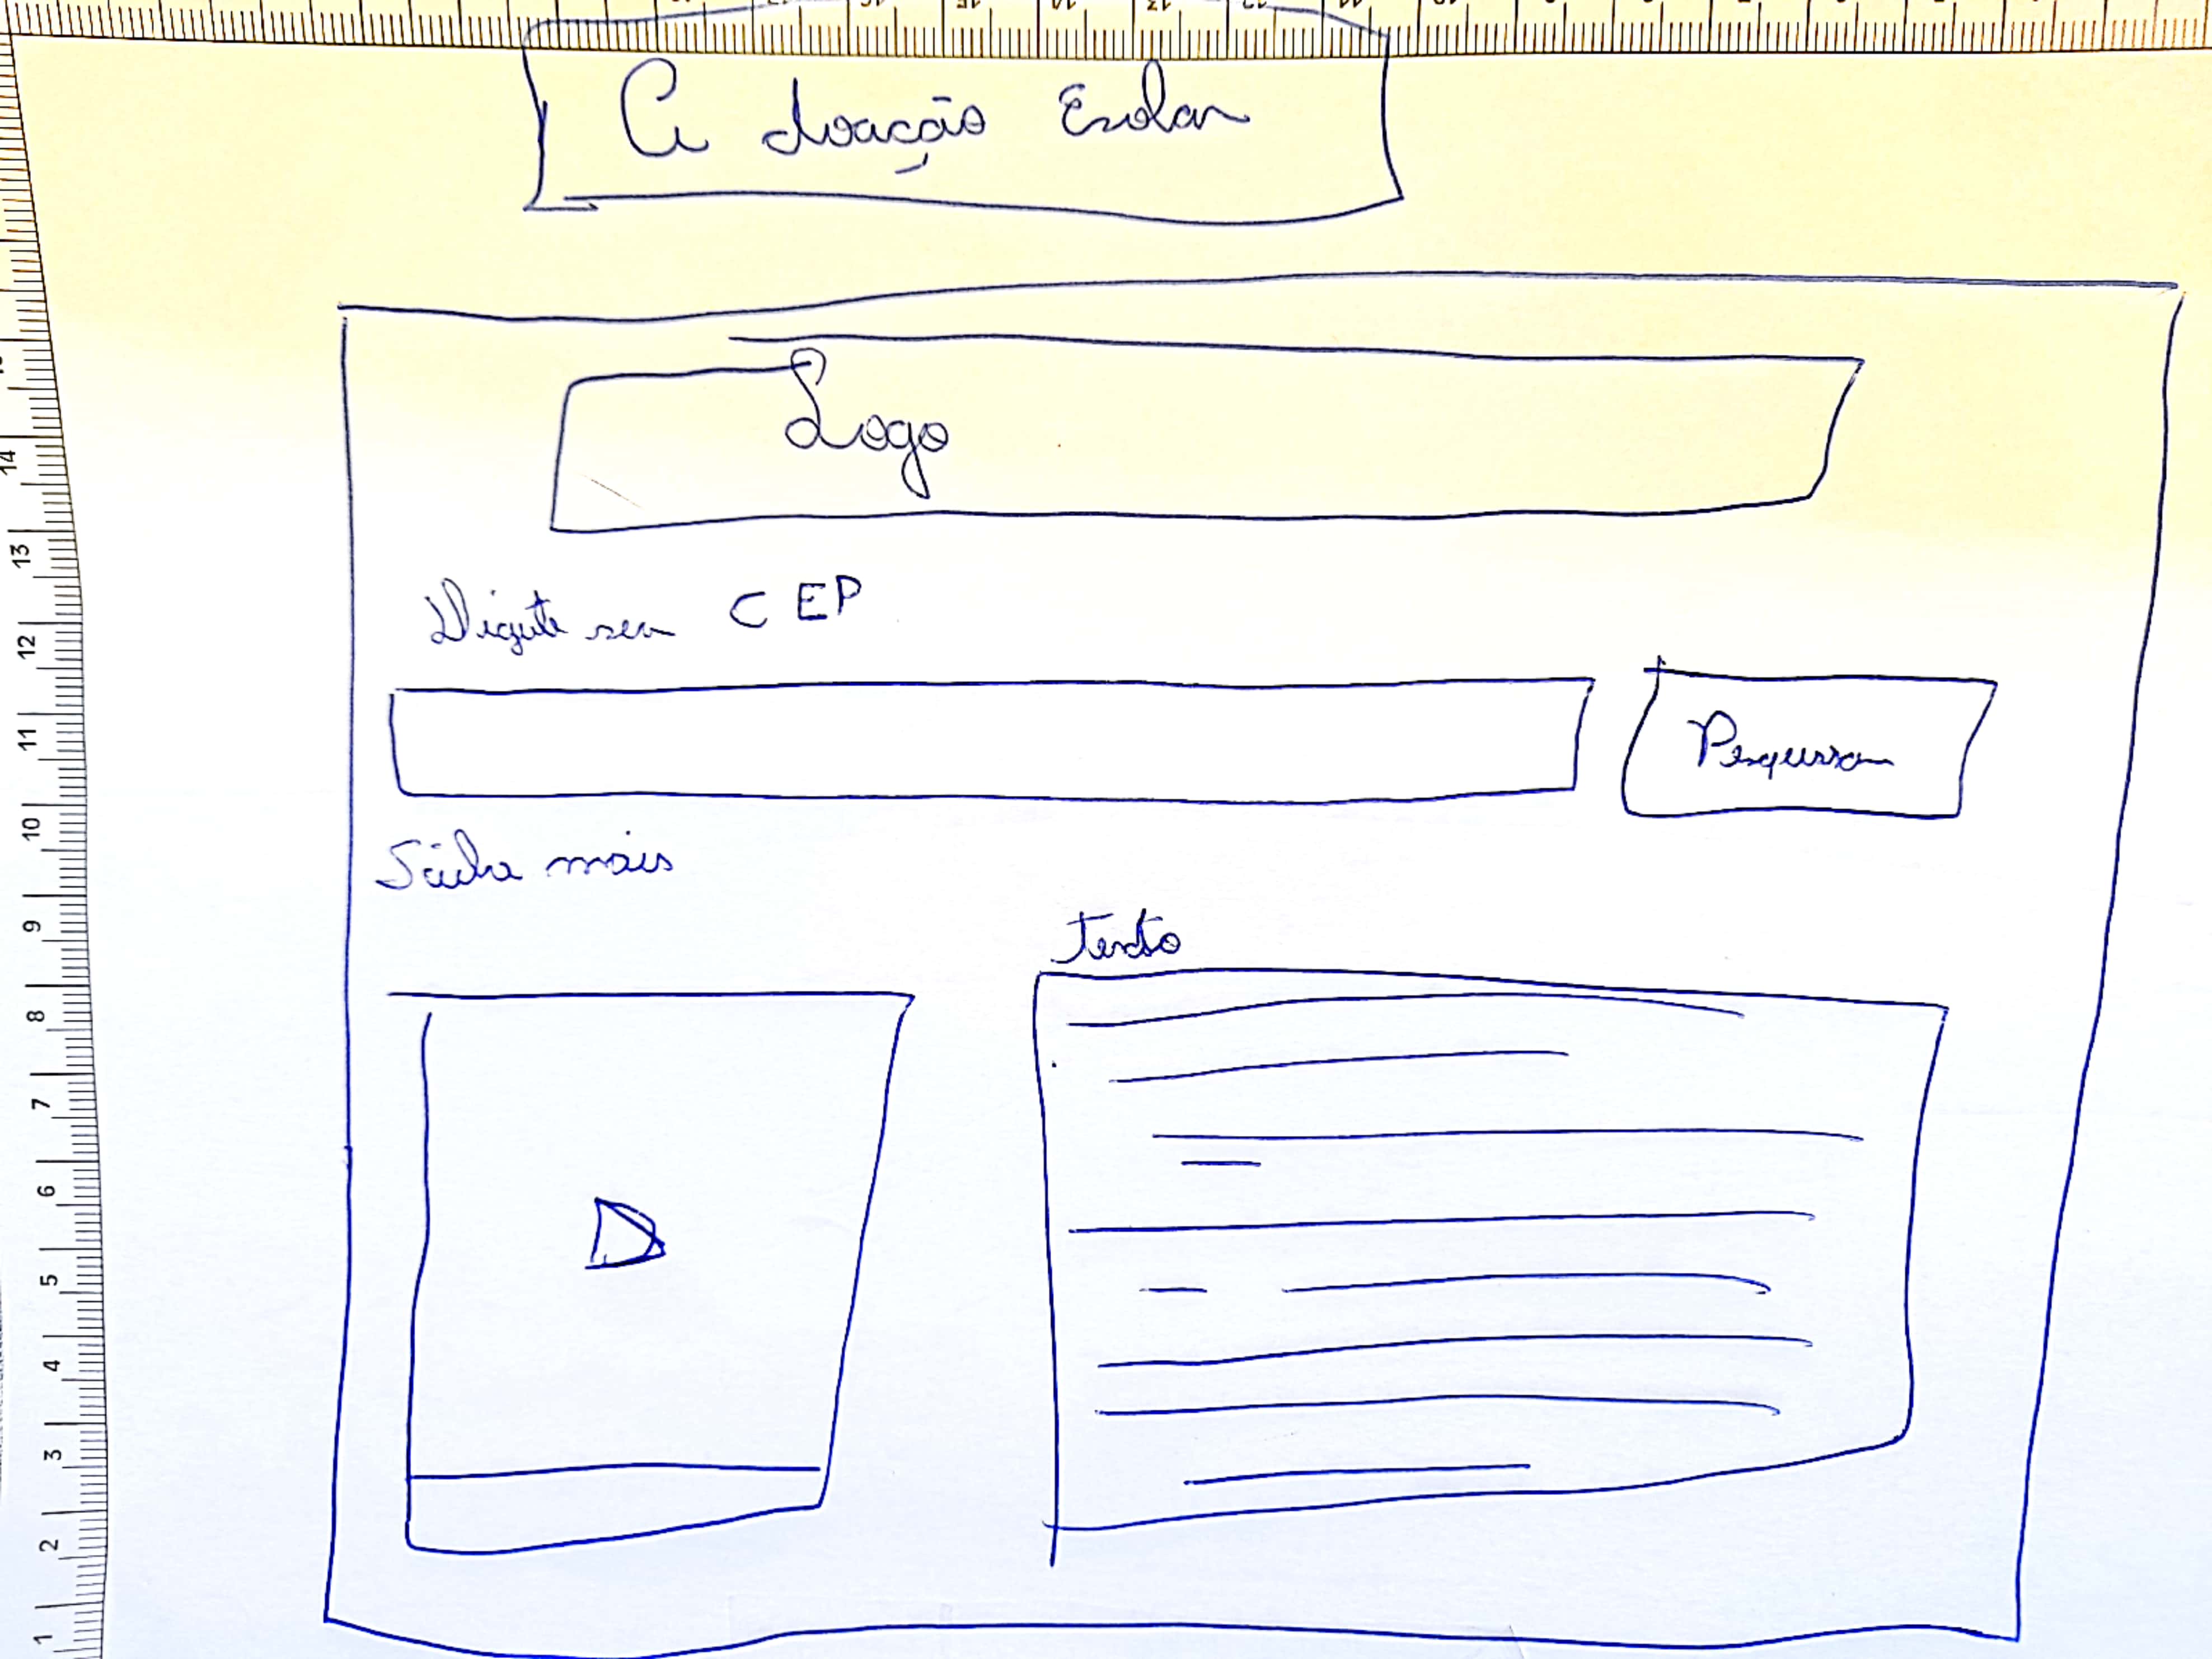 A doação Escolar
Logo
Digite seu CEP
Pesquisar
Saiba mais
texto
14
13
12
11
10
9
8
7
6
5
4
3
2
1